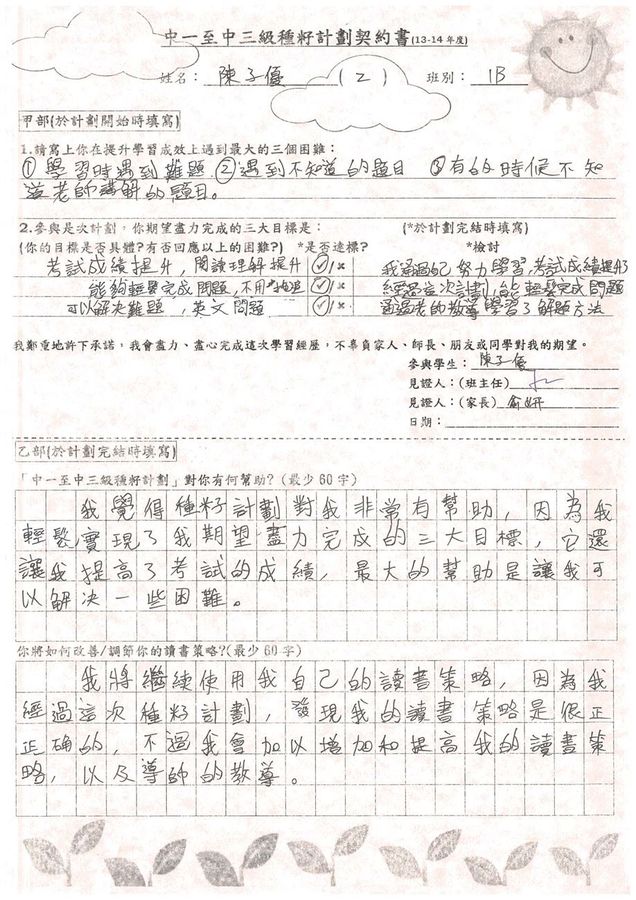 中一至中三級種籽計劃契約書(13-14年度)
姓名： 陳子優 (2) 班別： 1B
甲部(於計劃開始時填寫)
1.請寫上你在提升學習成效上遇到最大的三個困難：
①學習時遇到難題 ②遇到不知道的題目 ③有的時候不知
道老師講解的題目。
2.參與是次計劃，你期望盡力完成的三大目標是： (*於計劃完結時填寫)
(你的目標是否具體?有否回應以上的困難?) *是否達標? *檢討
考試成績提升，閱讀理解提升 ✓/× 我通過自己努力學習，考試成績提升了
能夠輕鬆完成問題，不用 ✓/× 經過這次計劃，能輕鬆完成問題
可以解決難題，英文問題 ✓/× 通過老師教導學習了解題方法
我鄭重地許下承諾，我會盡力、盡心完成這次學習經歷，不辜負家人、師長、朋友或同學對我的期望。
參與學生： 陳子優
見證人：(班主任)
見證人：(家長)
日期：
乙部(於計劃完結時填寫)
「中一至中三級種籽計劃」對你有何幫助?(最少60字)
我覺得種籽計劃對我非常有幫助，因為我
輕鬆實現了我期望盡力完成的三大目標，它還
讓我提高了考試的成績，最大的幫助是讓我可
以解決一些困難。
你將如何改善/調節你的讀書策略?(最少60字)
我將繼續使用我自己的讀書策略，因為我
經過這次種籽計劃，發現我的讀書策略是很正
正確的，不過我會加以增加和提高我的讀書策
略，以及導師的教導。